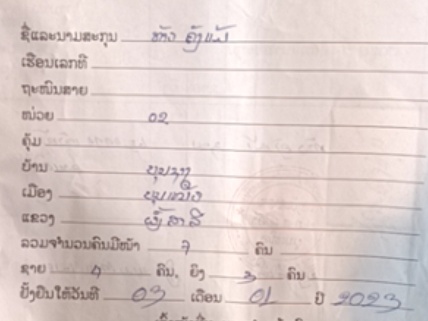 ຊື່ແລະນາມສະກຸນ ທ້າວ
ເຮືອນເລກທີ
ຖະໜົນສາຍ
ໜ່ວຍ 02
ຄຸ້ມ
ບ້ານ
ເມືອງ
ແຂວງ ຜົ້ງສາລີ
ລວມຈຳນວນຄົນມີໜ້າ 7 ຄົນ
ຊາຍ 4 ຄົນ, ຍິງ 3 ຄົນ
ຢັ້ງຢືນໃຫ້ວັນທີ 03 ເດືອນ 01 ປີ 2023